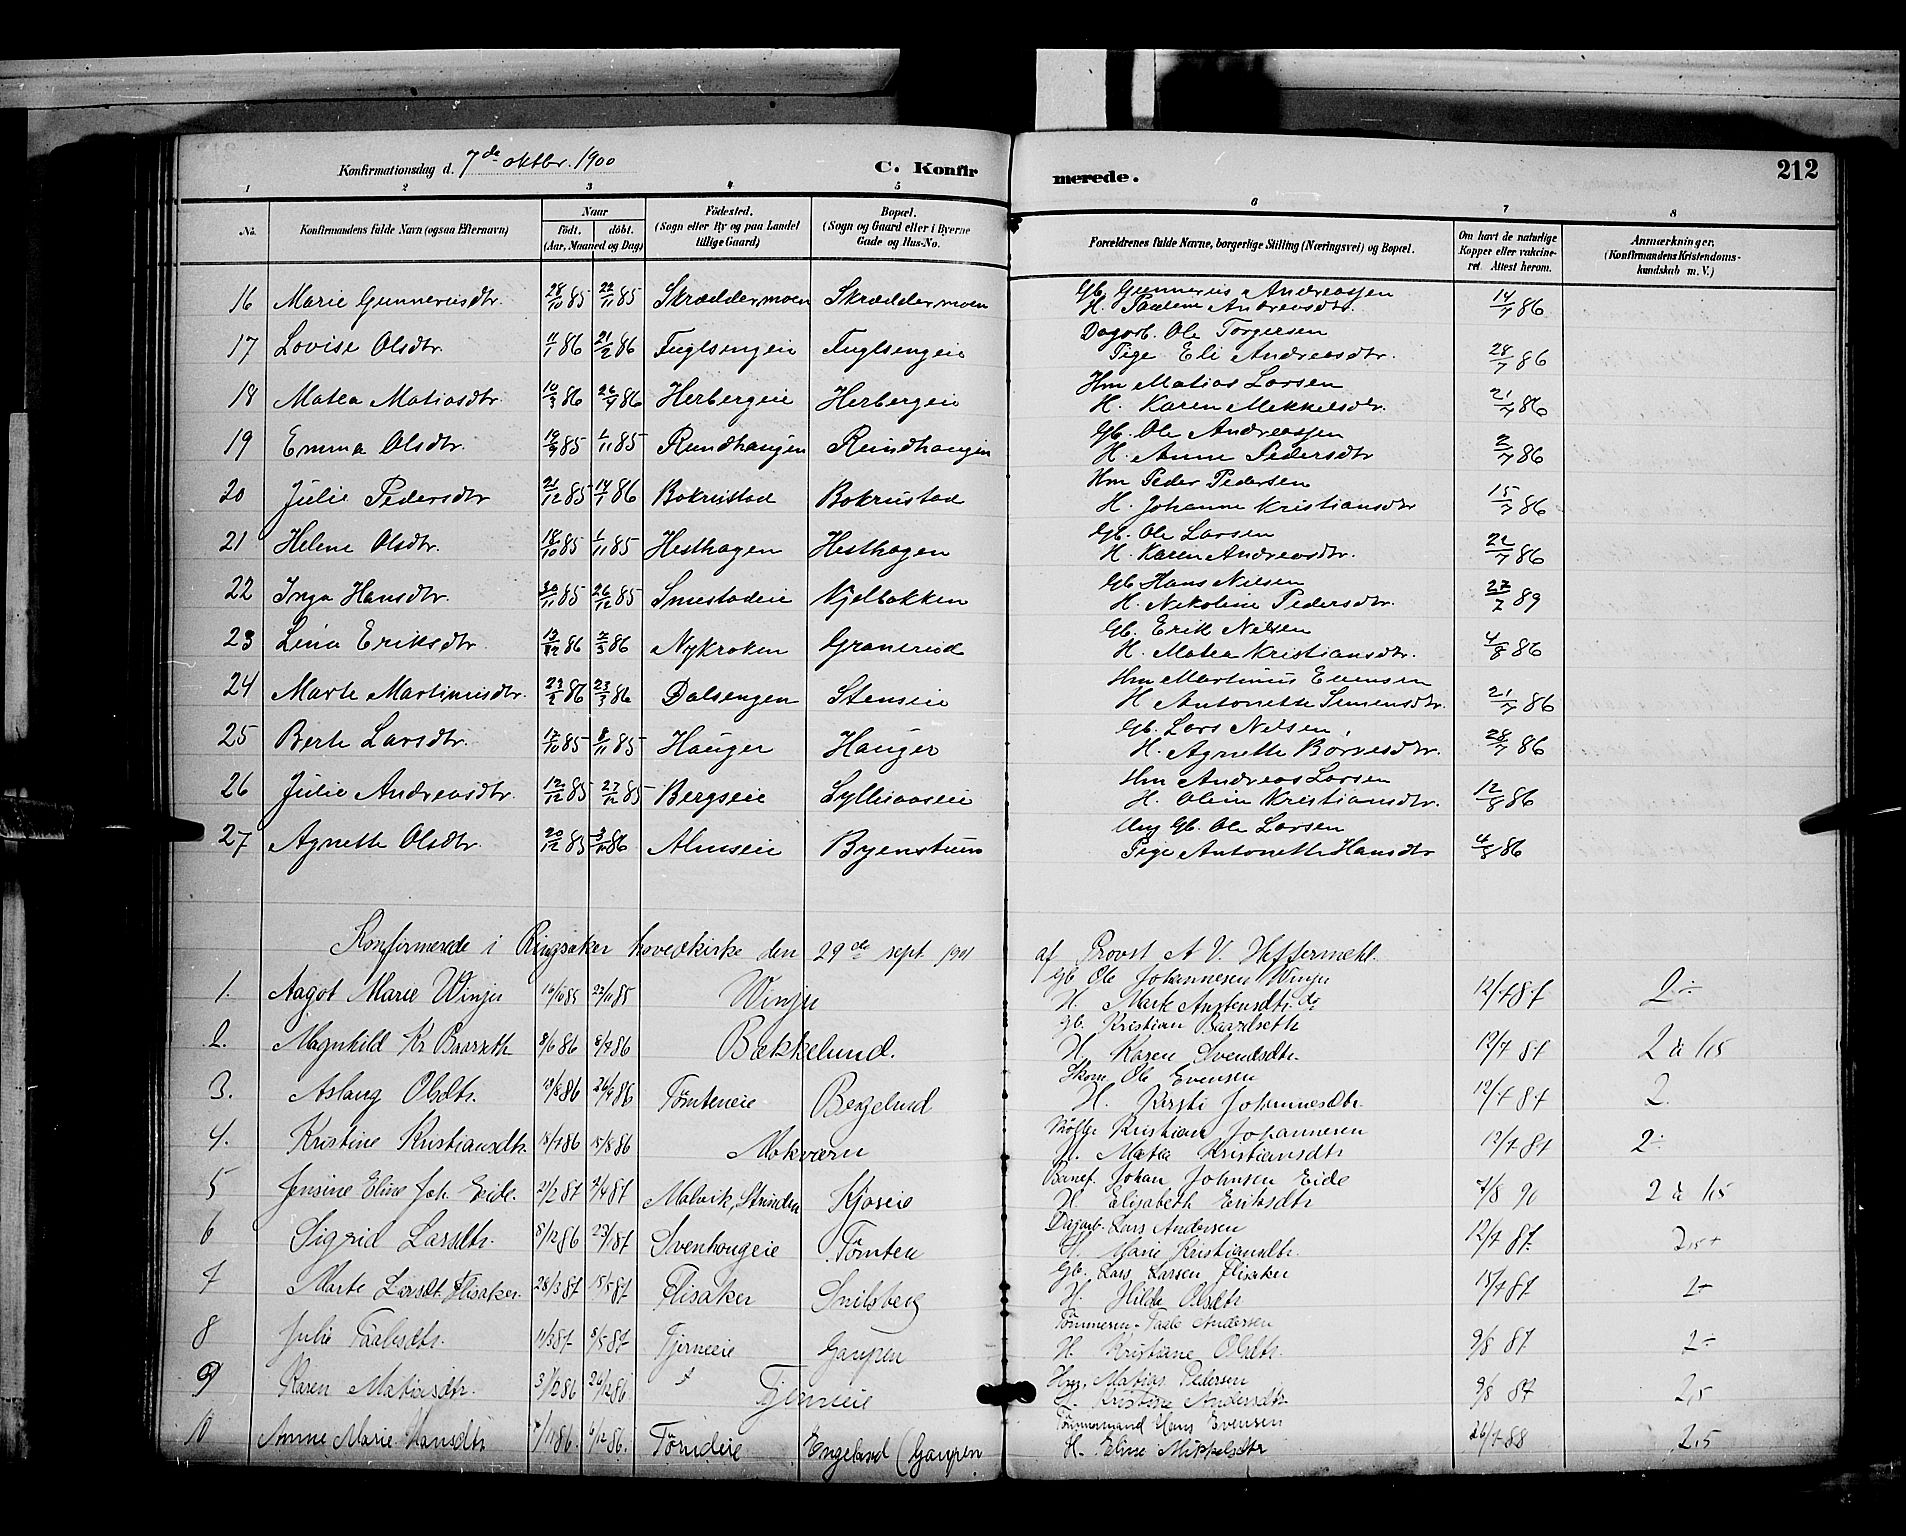 Konfirmationsdag d. 7de oktbr. 1900
C. Konfirmerede.
212
1 2 3 4 5 6 7 8
No. Konfirmandens fulde Navn (ogsaa Efternavn) Naar födt. döbt. (Aar, Maaned og Dag) Födested. (Sogn eller By og paa Landet tillige Gaard) Bopæl. (Sogn og Gaard eller i Byerne Gade og Hus-No. Forældrenes fulde Navne, borgerlige Stilling (Næringsvei) og Bopæl. Om havt de naturlige Kopper eller vakcineret. Attest herom. Anmærkninger. (Konfirmandens Kristendomskundskab m. V.)
16 Marie Gunneriusdtr. 28/10 85 22/11 85 Skræddermoen Skræddermoen Gb. Gunnerius Andreassen 14/7 86
H. Pauline Andreasdtr.
17 Lovise Olsdtr. 11/1 86 21/2 86 Fuglsengeie Fuglsengeie Dagarb. Ole Torgersen 28/7 86
Pige Eli Andreasdtr.
18 Matea Matiasdtr. 10/3 86 26/4 86 Herbergeie Herbergeie Hm Matias Larsen 21/7 86
H. Karen Mikkelsdtr.
19 Emma Olsdtr. 19/9 85 1/11 85 Rundhaugen Rundhaugen Gb. Ole Andreassen 2/7 86
H. Anne Pedersdtr
20 Julie Pedersdtr 21/12 85 17/1 86 Bokrustad Bokrustad Hm Peder Pedersen 15/7 86
H. Johanne Kristiansdtr
21 Helene Olsdtr. 18/10 85 1/11 85 Hesthagen Hesthagen Gb. Ole Larsen 22/7 86
H. Karen Andreasdtr.
22 Inga Hansdtr. 30/11 85 26/12 85 Smestadeie Njelbakken Gb Hans Nilsen 27/7 89
H. Nikoline Pedersdtr.
23 Lina Eriksdtr. 86 7/3 86 Nykroken Granerud Gb. Erik Nilsen 4/8 86
H. Matea Kristiansdtr.
24 Marte Martinusdtr. 23/2 86 23/3 86 Dalsengen Stenseie Hm Martinus Evensen 21/7 86
H Antonette Simensdtr.
25 Berte Larsdtr. 17/10 85 8/11 85 Hauger Hauger Gb. Lars Nilsen 28/7 86
H. Agnette Borresdtr.
26 Julie Andreasdtr. 12/12 85 27/12 85 Bergseie Hm Andreas Larsen 12/8 86
H. Oline Kristiansdtr.
27 Agnette Olsdtr. 20/12 85 86 Almseie Byenstuen Ung Gb. Ole Larsen 4/8 86
Pige Antonette Hansdtr
Konfirmerede i Ringsaker hovedkirke den 29de sept. 1901 af Provst A V. Heffermehl.
1. Aagot Marie Winju 16/10 85 22/11 85 Winju Gb Ole Johannesen Winju 12/7 87 2÷
H. Marte Anstensdtr. do
2. Magnhild Kr Baarseth 8/6 86 8/7 86 Bækkelund. Gb. Kristian Baarseth 12/7 87 2 à 1.5
H. Karen Svendsdtr.
3. Aslaug Olsdtr. 19/8 86 26/9 86 Tömteneie Bergelund Skom. Ole Evensen 12/7 87 2.
H. Kersti Johannesdtr.
4. Kristine Kristiansdtr. 15/7 86 15/8 86 Mokværn Kristian Johannesen 12/7 87 2÷
H. Matea Kristiansdtr
5 Jensine Eline Joh. Eide. 21/2 87 2/4 87 Malvik, Strinden Kjoseie Banef. Johan Johnsen Eide 7/8 90 2 à 1.5
H. Elisabeth Eriksdtr
6 Sigrid Larsdtr. 5/12 86 23/1 87 Svenhougeie Tömten Dagarb. Lars Andersen 12/7 87. 2,5+
H. Marie Kristiansdtr.
7 Marte Larsdt. Flisaker. 28/3 87 15/5 87 Flisaker Snilsberg Gb. Lars Larsen Flisaker 15/7 87 2÷
H. Hilda Olsdtr
8 Julie 11/3 87 8/5 87 Tjerneeie Gaupen Tömmerm. Andersen 9/8 87 2÷
H. Kristiane Olsdtr.
9 Karen Matiasdtr. 3/12 86 26/12 86 Tjerneeie Hm. Matias Pedersen 9/8 87 2,5
H. Kristine Andersdtr
10 Anne Marie Hansdtr 7/11 86. 6/12 86. Engeland (Gaupen Tömmermand Hans Evensen 26/7 88 2,5
H. Eline Mikkelsdtr